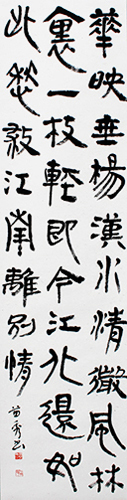 華映垂楊漢水清微風林
裏一枝輕即今江北還如
此愁殺江南離別情